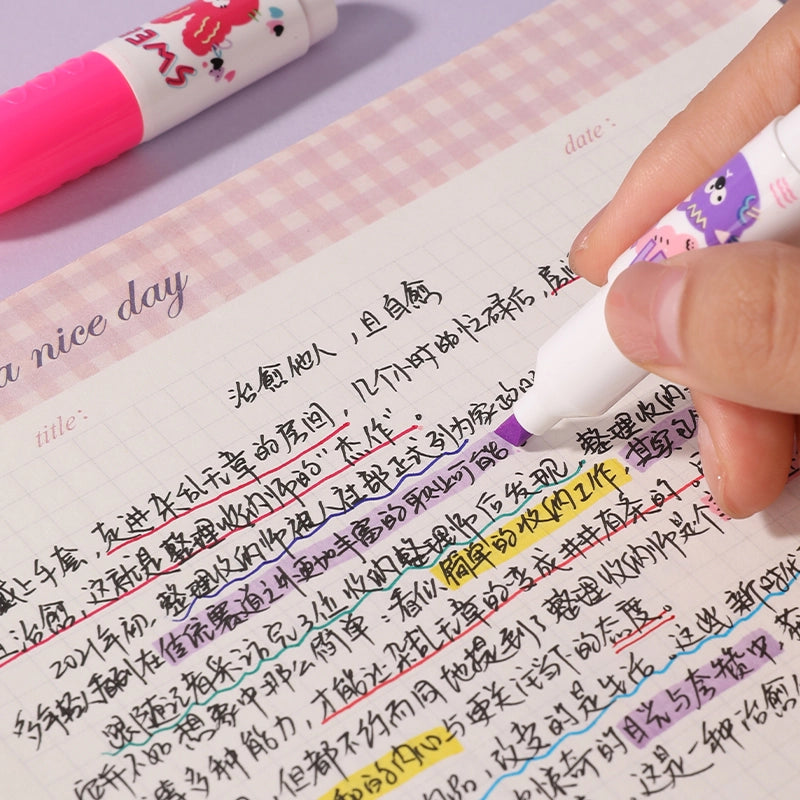 SWEE
a nice day
date:
title:
治愈他人,且自愈
戴上手套,走进杂乱无章的房间,几个小时的忙碌后,房
治愈,这就是整理收纳师的"杰作"。
2021年初,整理收纳师被人社部正式列为家政
多年轻人看到在传统赛道之外更加丰富的职业可能。
跟随记者采访完3位收纳整理师后发现,整理收纳
并不如想象中那么简单:看似简单的收纳工作,其实
多种能力,才能让杂乱无章的变成井井有条的
但都不约而同地提到了整理收纳师是个
的内心与更关注当下的态度。
改变的是生活。这些新时代
惊奇的目光与夸赞中,
这是一种治愈